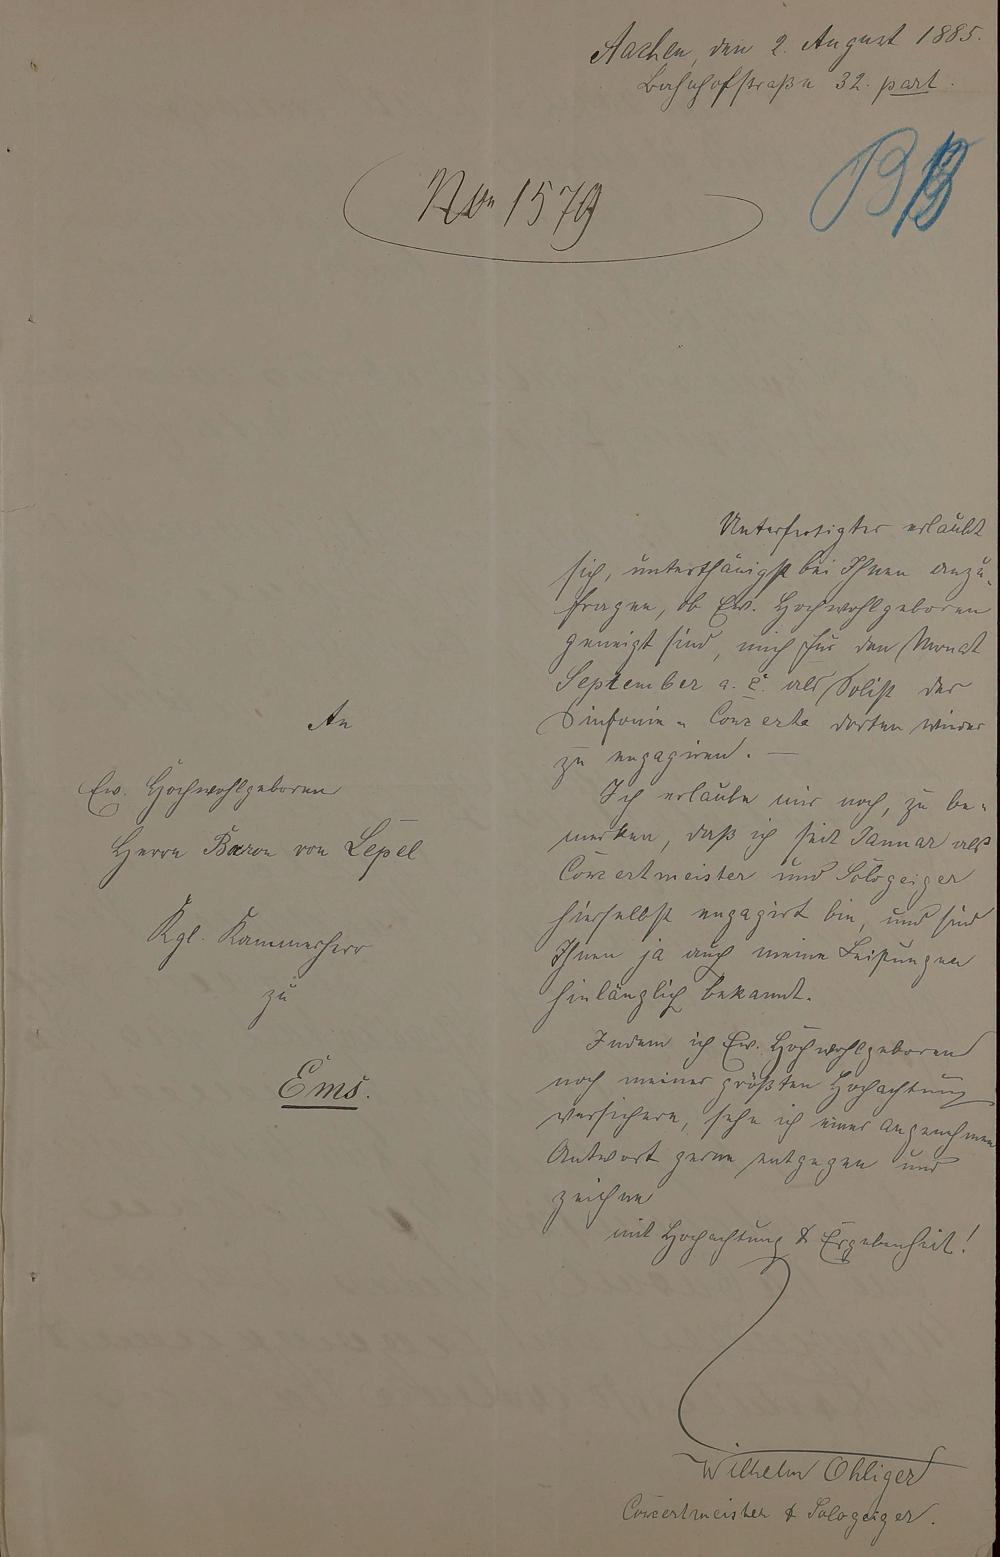 Aachen, den 2. August 1885.
Bahnhofstraße 32. part.
No 1579
Unterfertigter erlaubt
sich, unterthänigst bei Ihnen anzu-
fragen, ob Ew. Hochwohlgeboren
geneigt sind, mich für den Monat
September a. c. als Solist der
Sinfonie-Concerte dorten wieder
zu engagiren. —
Ich erlaube mir noch, zu be-
merken, daß ich seit Januar als
Concertmeister und Sologeiger
hierselbst engagirt bin, und sind
Ihnen ja auch meine Leistungen
hinlänglich bekannt.
Indem ich Ew. Hochwohlgeboren
noch meiner größten Hochachtung
versichere, sehe ich einer angenehmen
Antwort gerne entgegen und
zeichne
mit Hochachtung & Ergebenheit!
Wilhelm Ohliger
Concertmeister & Sologeiger.
An
Ew. Hochwohlgeboren
Herrn Baron von Lepel
Kgl. Kammerherr
zu
Ems.